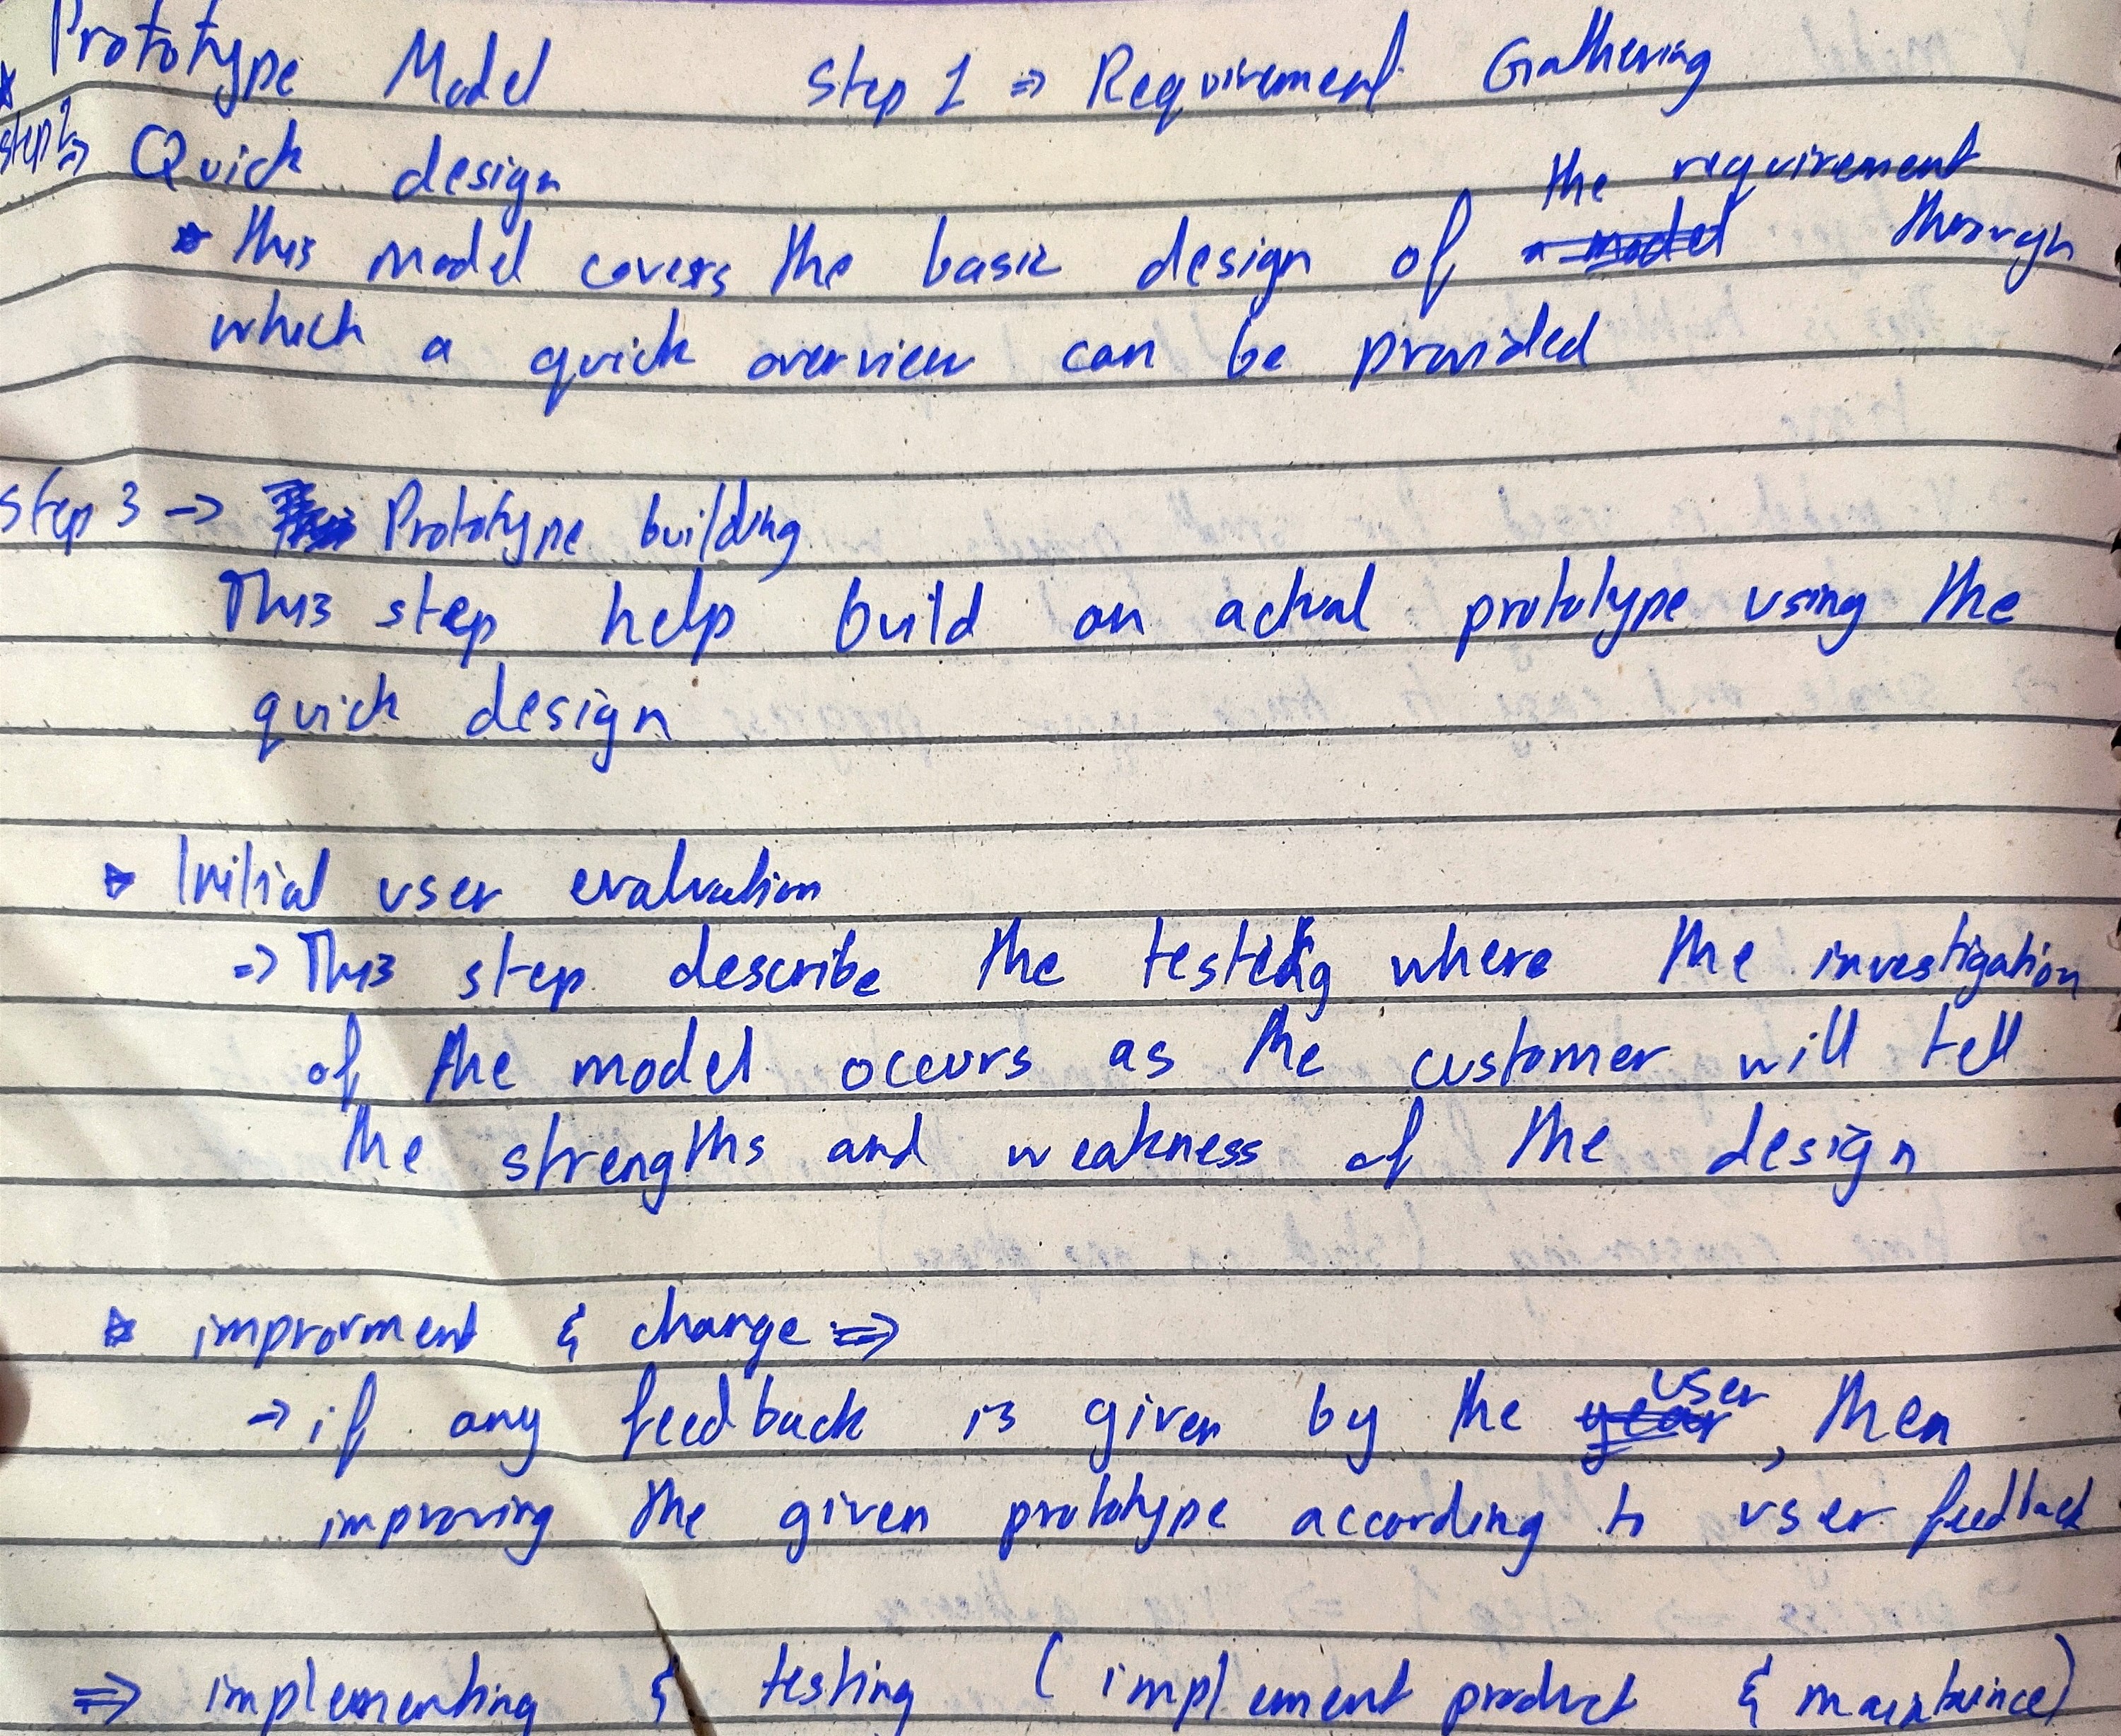 * Prototype Model Step 1 ⇒ Requirement Gathering
step 2 ⇒ Quick design
the requirement
* this model covers the basic design of a model through
which a quick overview can be provided
Step 3 → Prototype building
This step help build an actual prototype using the
quick design
* Initial user evaluation
⇒ This step describe the testing where the investigation
of the model occurs as the customer will tell
the strengths and weakness of the design
* improvment & change ⇒
user
→ if any feedback is given by the year, then
improving the given prototype according to user feedback
⇒ implementing & testing (implement product & maintaince)